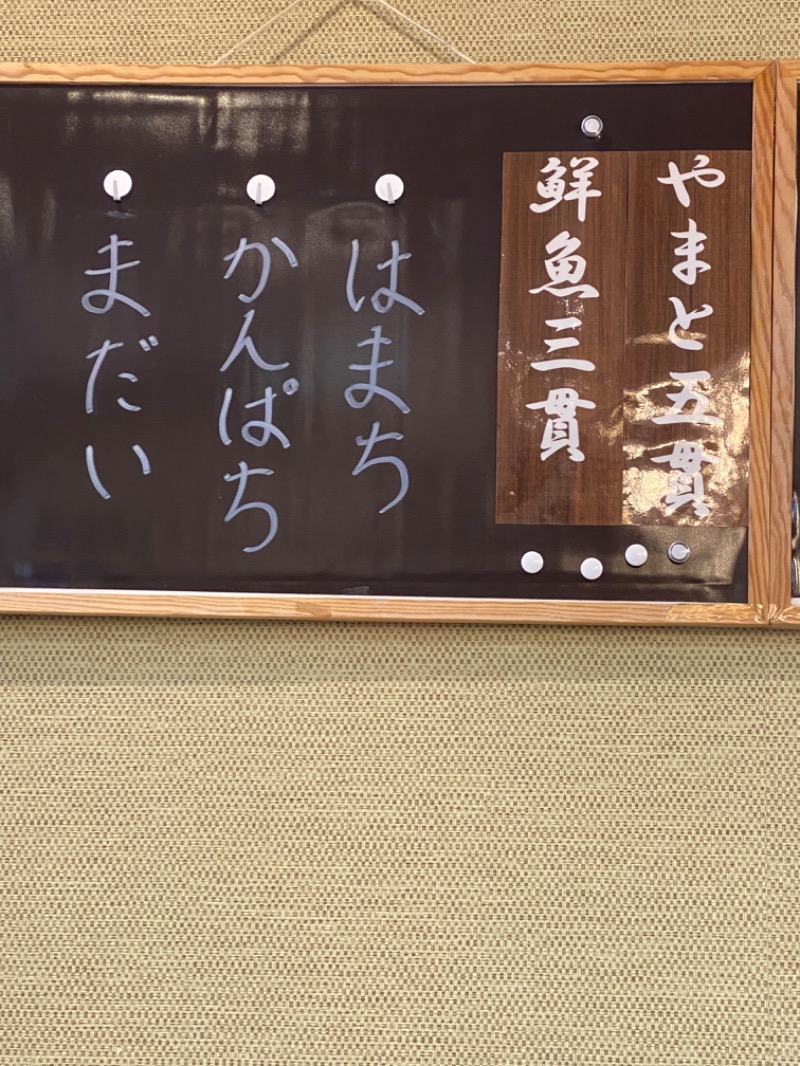 やまと五貫
鮮魚三貫
はまち
かんぱち
まだい